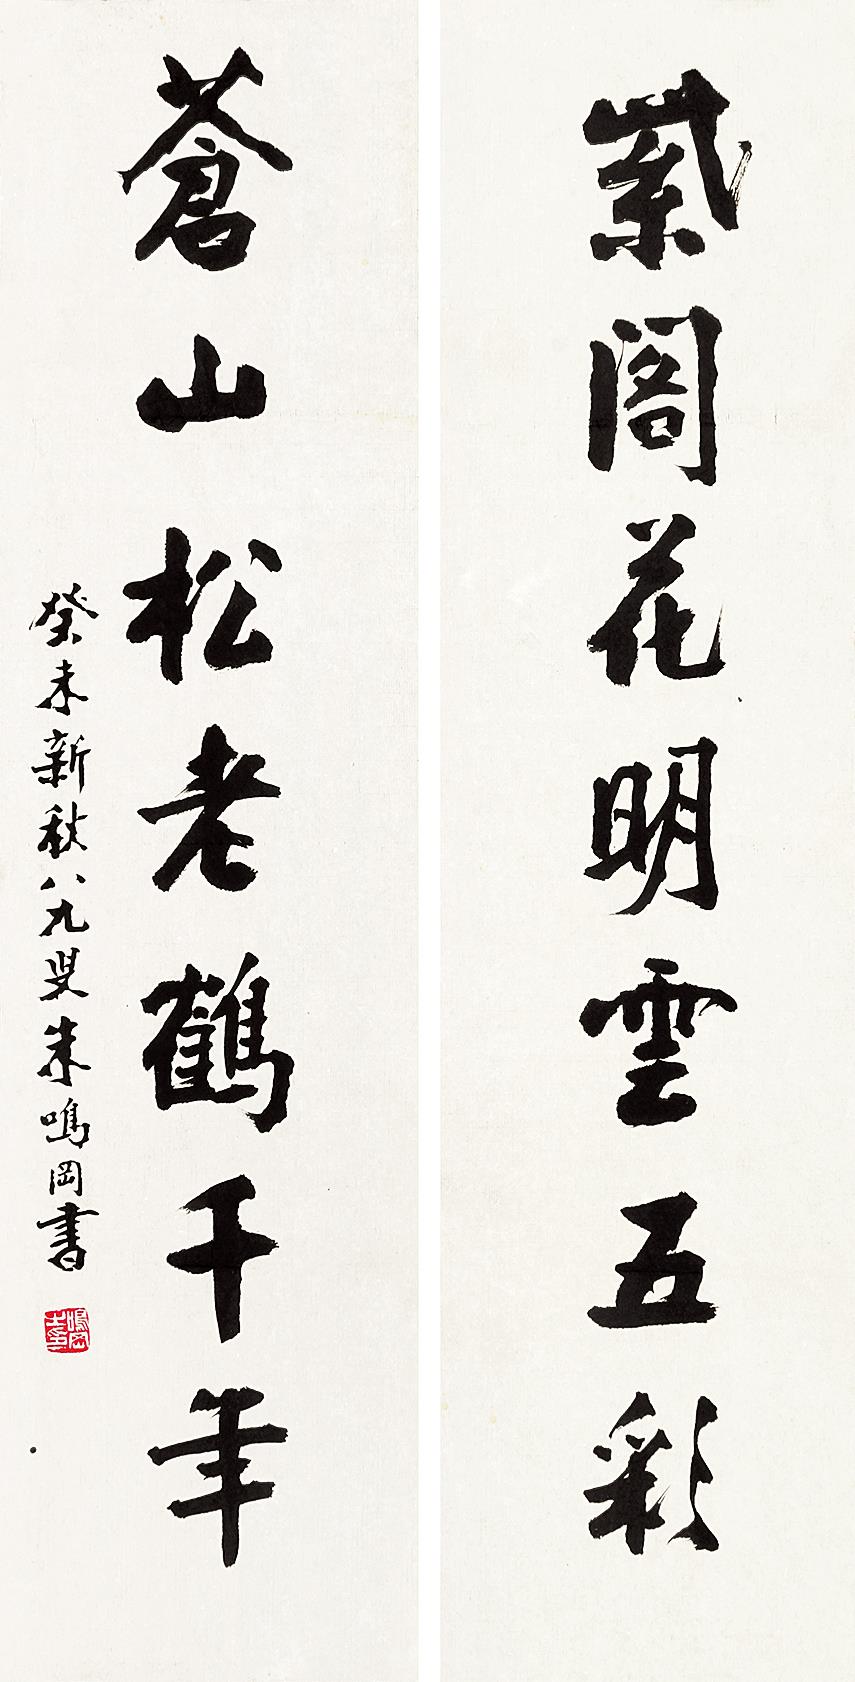 紫閣花明雲五彩
蒼山松老鶴千年
癸未新秋八九叟朱鳴岡書